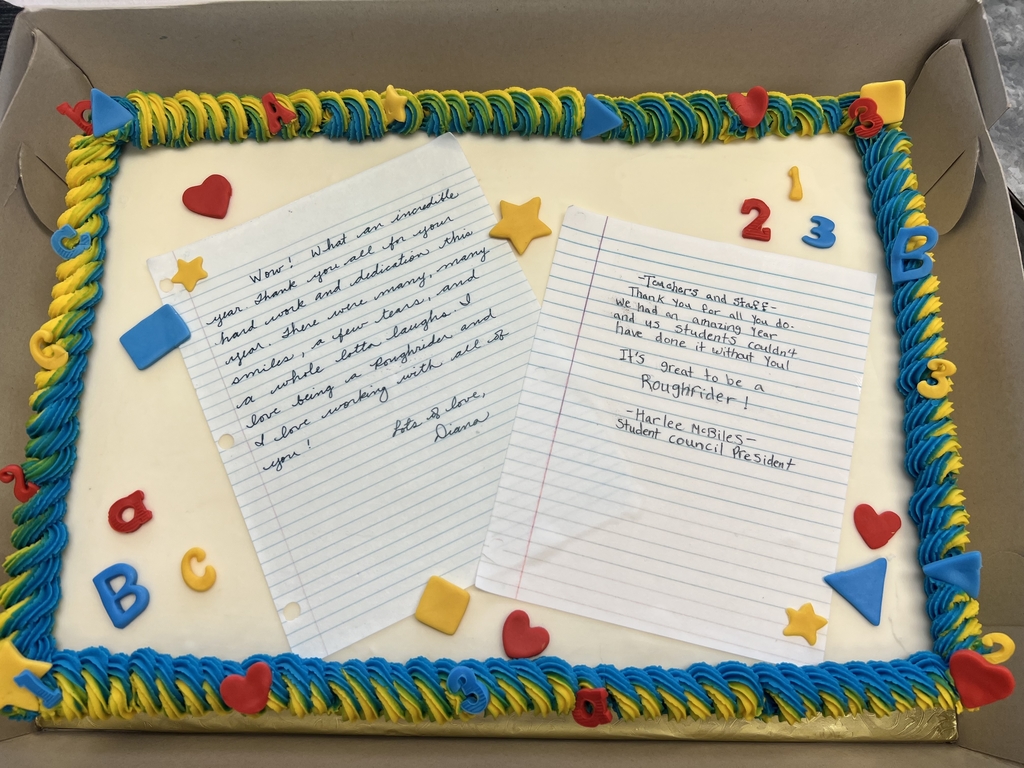 Wow! What an incredible
year. Thank you all for your
hard work and dedication this
year. There were many, many
smiles, a few tears, and
a whole lotta laughs. I
love being a Roughrider and
I love working with all of
you!
Lots of love,
Diana
-Teachers and Staff-
Thank you for all you do.
We had an amazing year
and us students couldn't
have done it without you!
It's great to be a
Roughrider!
-Harlee McBiles-
Student council President
1
2 3
a
B C
A
3
C
B
3
2
1
3
a